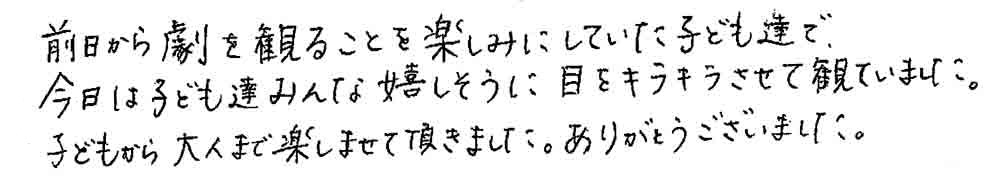 前日から劇を観ることを楽しみにしていた子ども達で、
今日は子ども達みんな嬉しそうに目をキラキラさせて観ていました。
子どもから大人まで楽しませて頂きました。ありがとうございました。